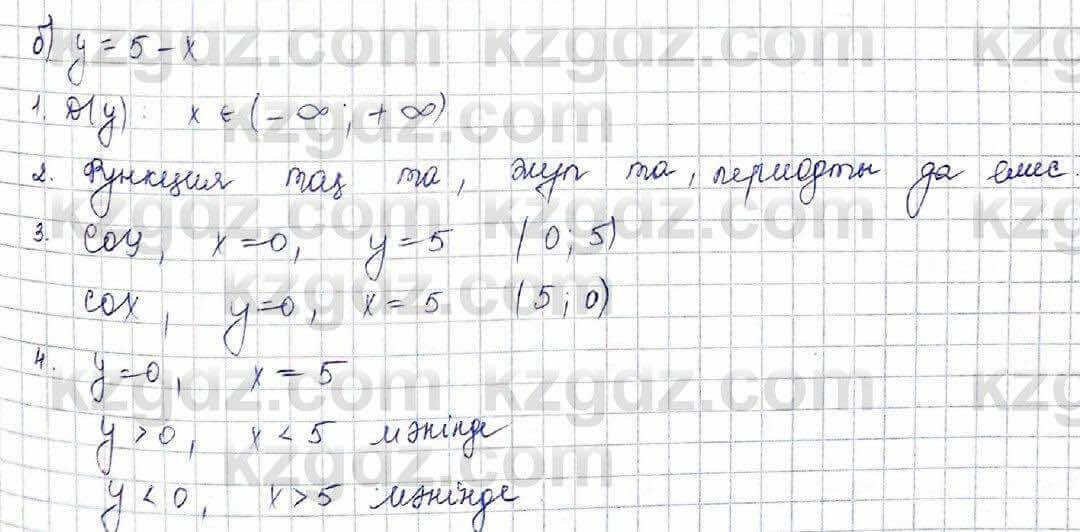 б) y = 5 - x
1. D(y): x ∈ (-∞; +∞)
2. Функция тақ та, жұп та, периодты да емес.
3. COY, x=0, y=5 (0; 5)
COX, y=0, x=5 (5; 0)
4. y=0, x=5
y>0, x<5 мәнінде
y<0, x>5 мәнінде